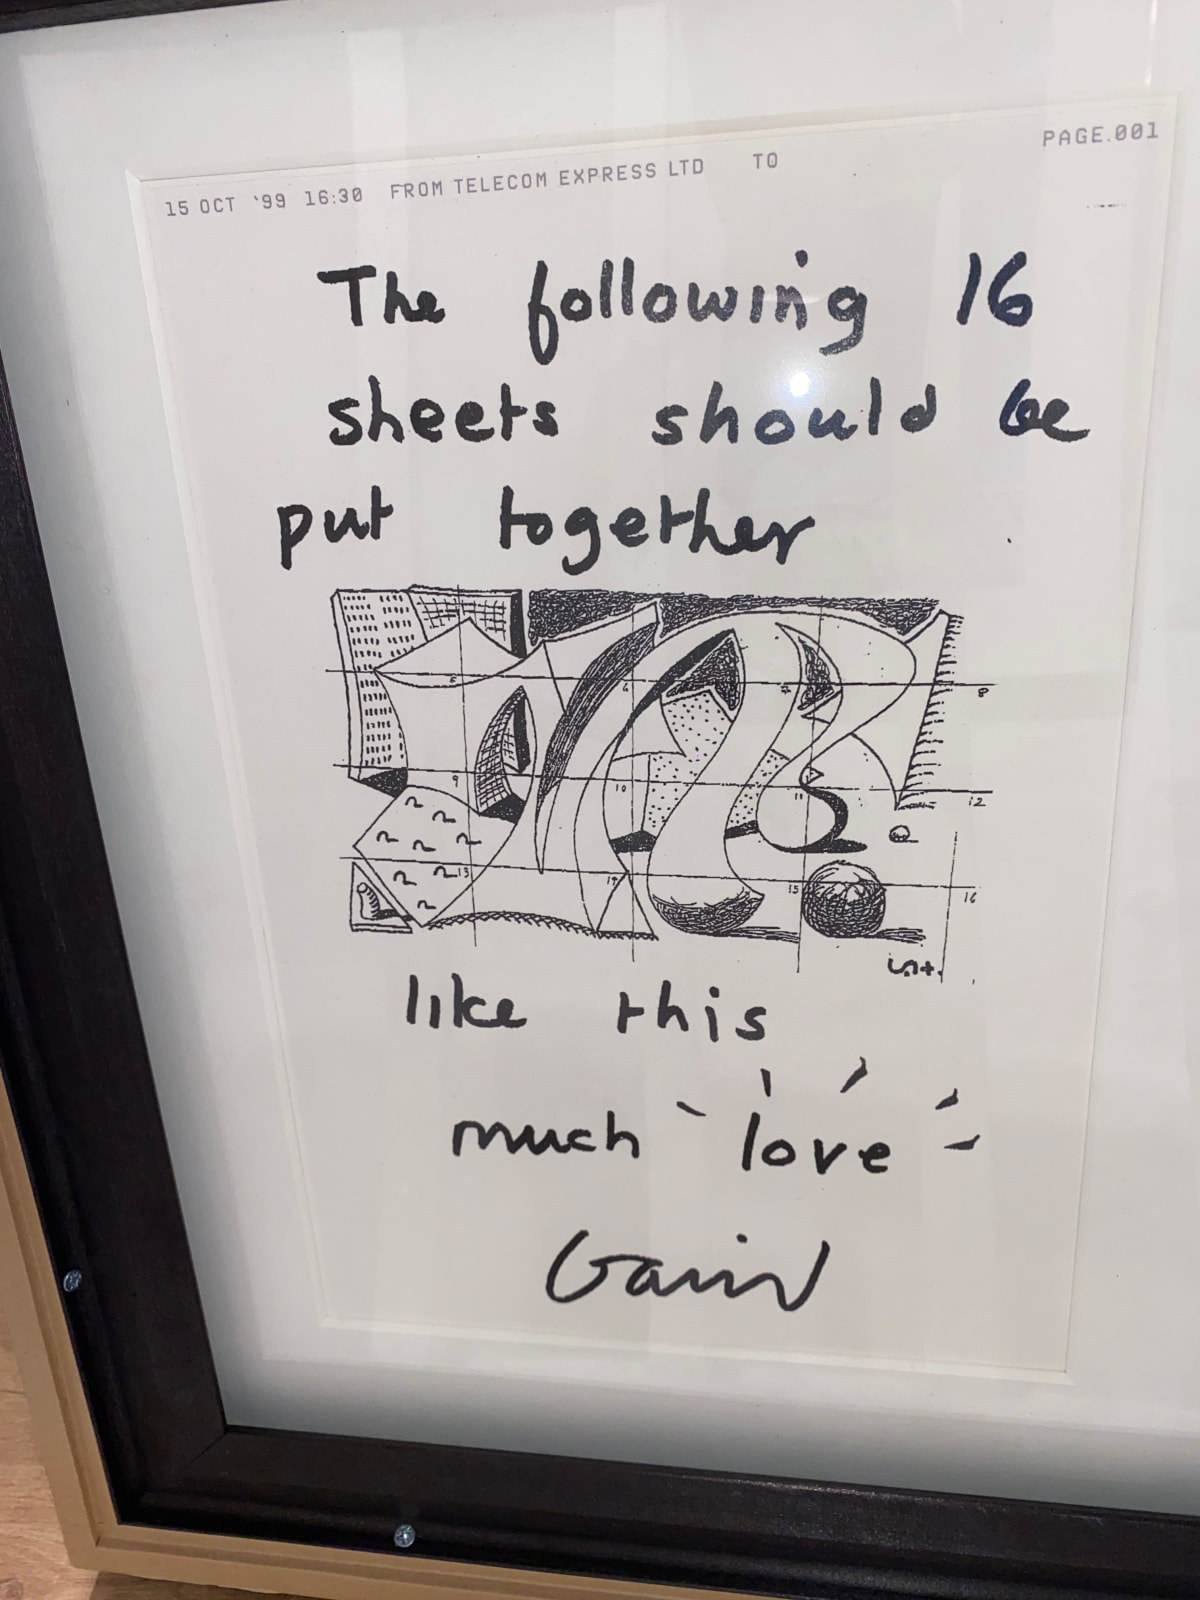 15 OCT '99 16:30 FROM TELECOM EXPRESS LTD TO PAGE.001
The following 16
sheets should be
put together
5 6 7 8
9 10 11 12
13 14 15 16
like this
much love